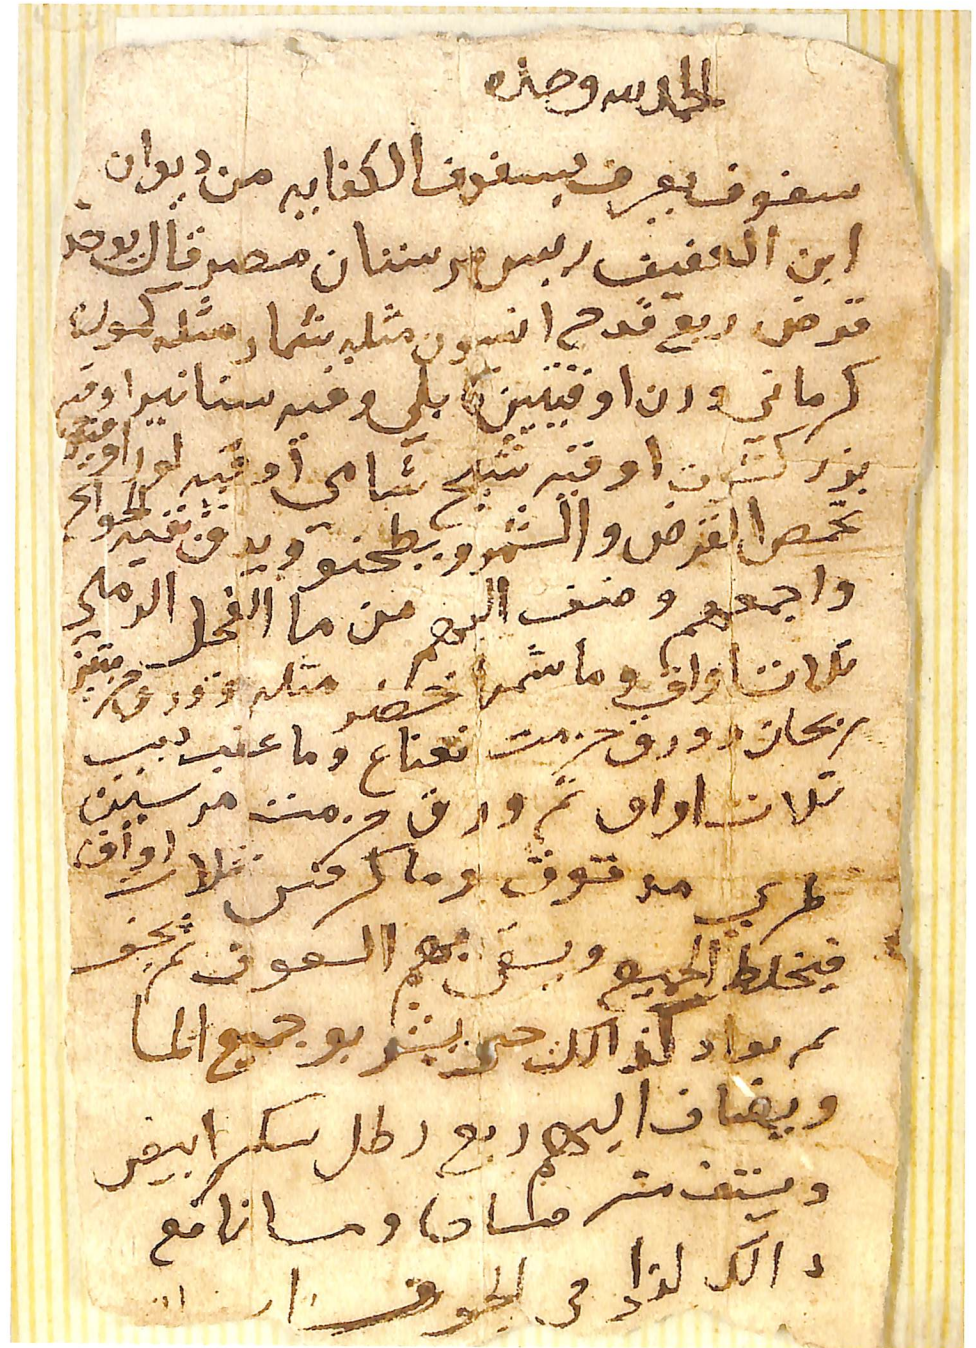 الحمد لله وحده
سفوف يعرف بسفوف الكفايه من ديوان
ابن العفيف ريس مرستان مصر قال يوخد
قرض ربع قدح انيسون مثله شمار مثله كمون
كرماني وزن اوقيتين كابلي وقيه سنانير اوقيه
بزر كشوت اوقيه شيح شامي أوقيه لوز اوقيه
تحمص القرض والشمر ويطحنو ويدق بقية الحوايج
واجمعهم وضف اليهم من ما الفجل الرملي
ثلاث اواق وما شمر اخضر مثله وورق
ريحان وورق حزمت نعناع وما عنب ديب
ثلاث اواق ثم ورق حزمت مرسين
طري مدقوق وما كرفس ثلاث اواق
فيخلط الجميع ويسقى بهم السفوف ثم يجفف
ثم يعاد كذالك حتى يشربو جميع الما
ويضاف اليهم ربع رطل سكر ابيض
ويستف منه صباحا ومسا نافع
دالك لذا في الجوف